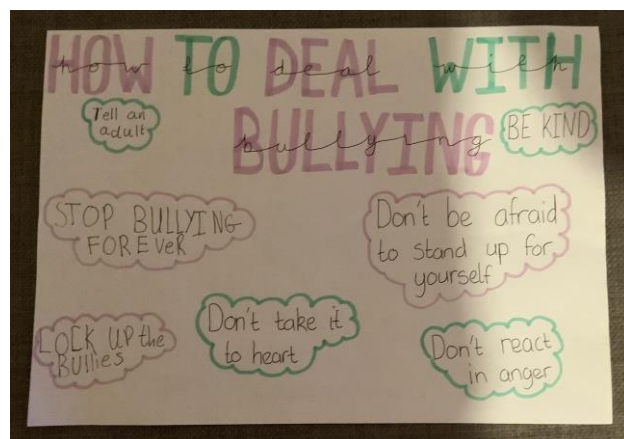 HOW TO DEAL WITH
how to deal with
BULLYING
bullying
Tell an
adult
BE KIND
STOP BULLYING
FOREVeR
Don't be afraid
to stand up for
yourself
LOCK UP the
BUllies
Don't take it
to heart
Don't react
in anger